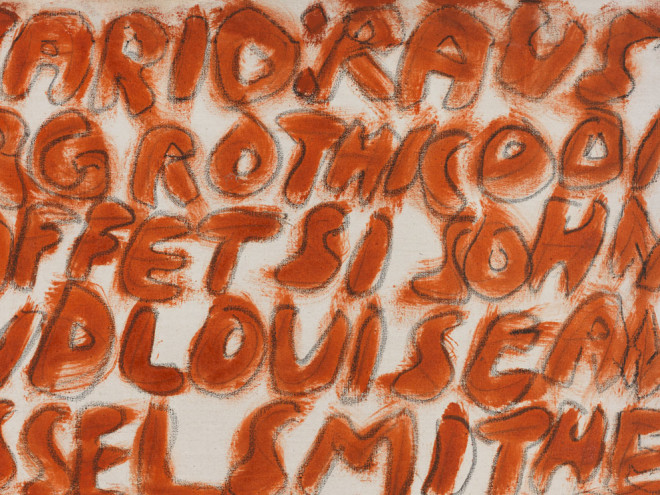 ARID:RAUS
GROTHICOD
FFETSISOHN
DLOUISEAM
SSELSMITHE